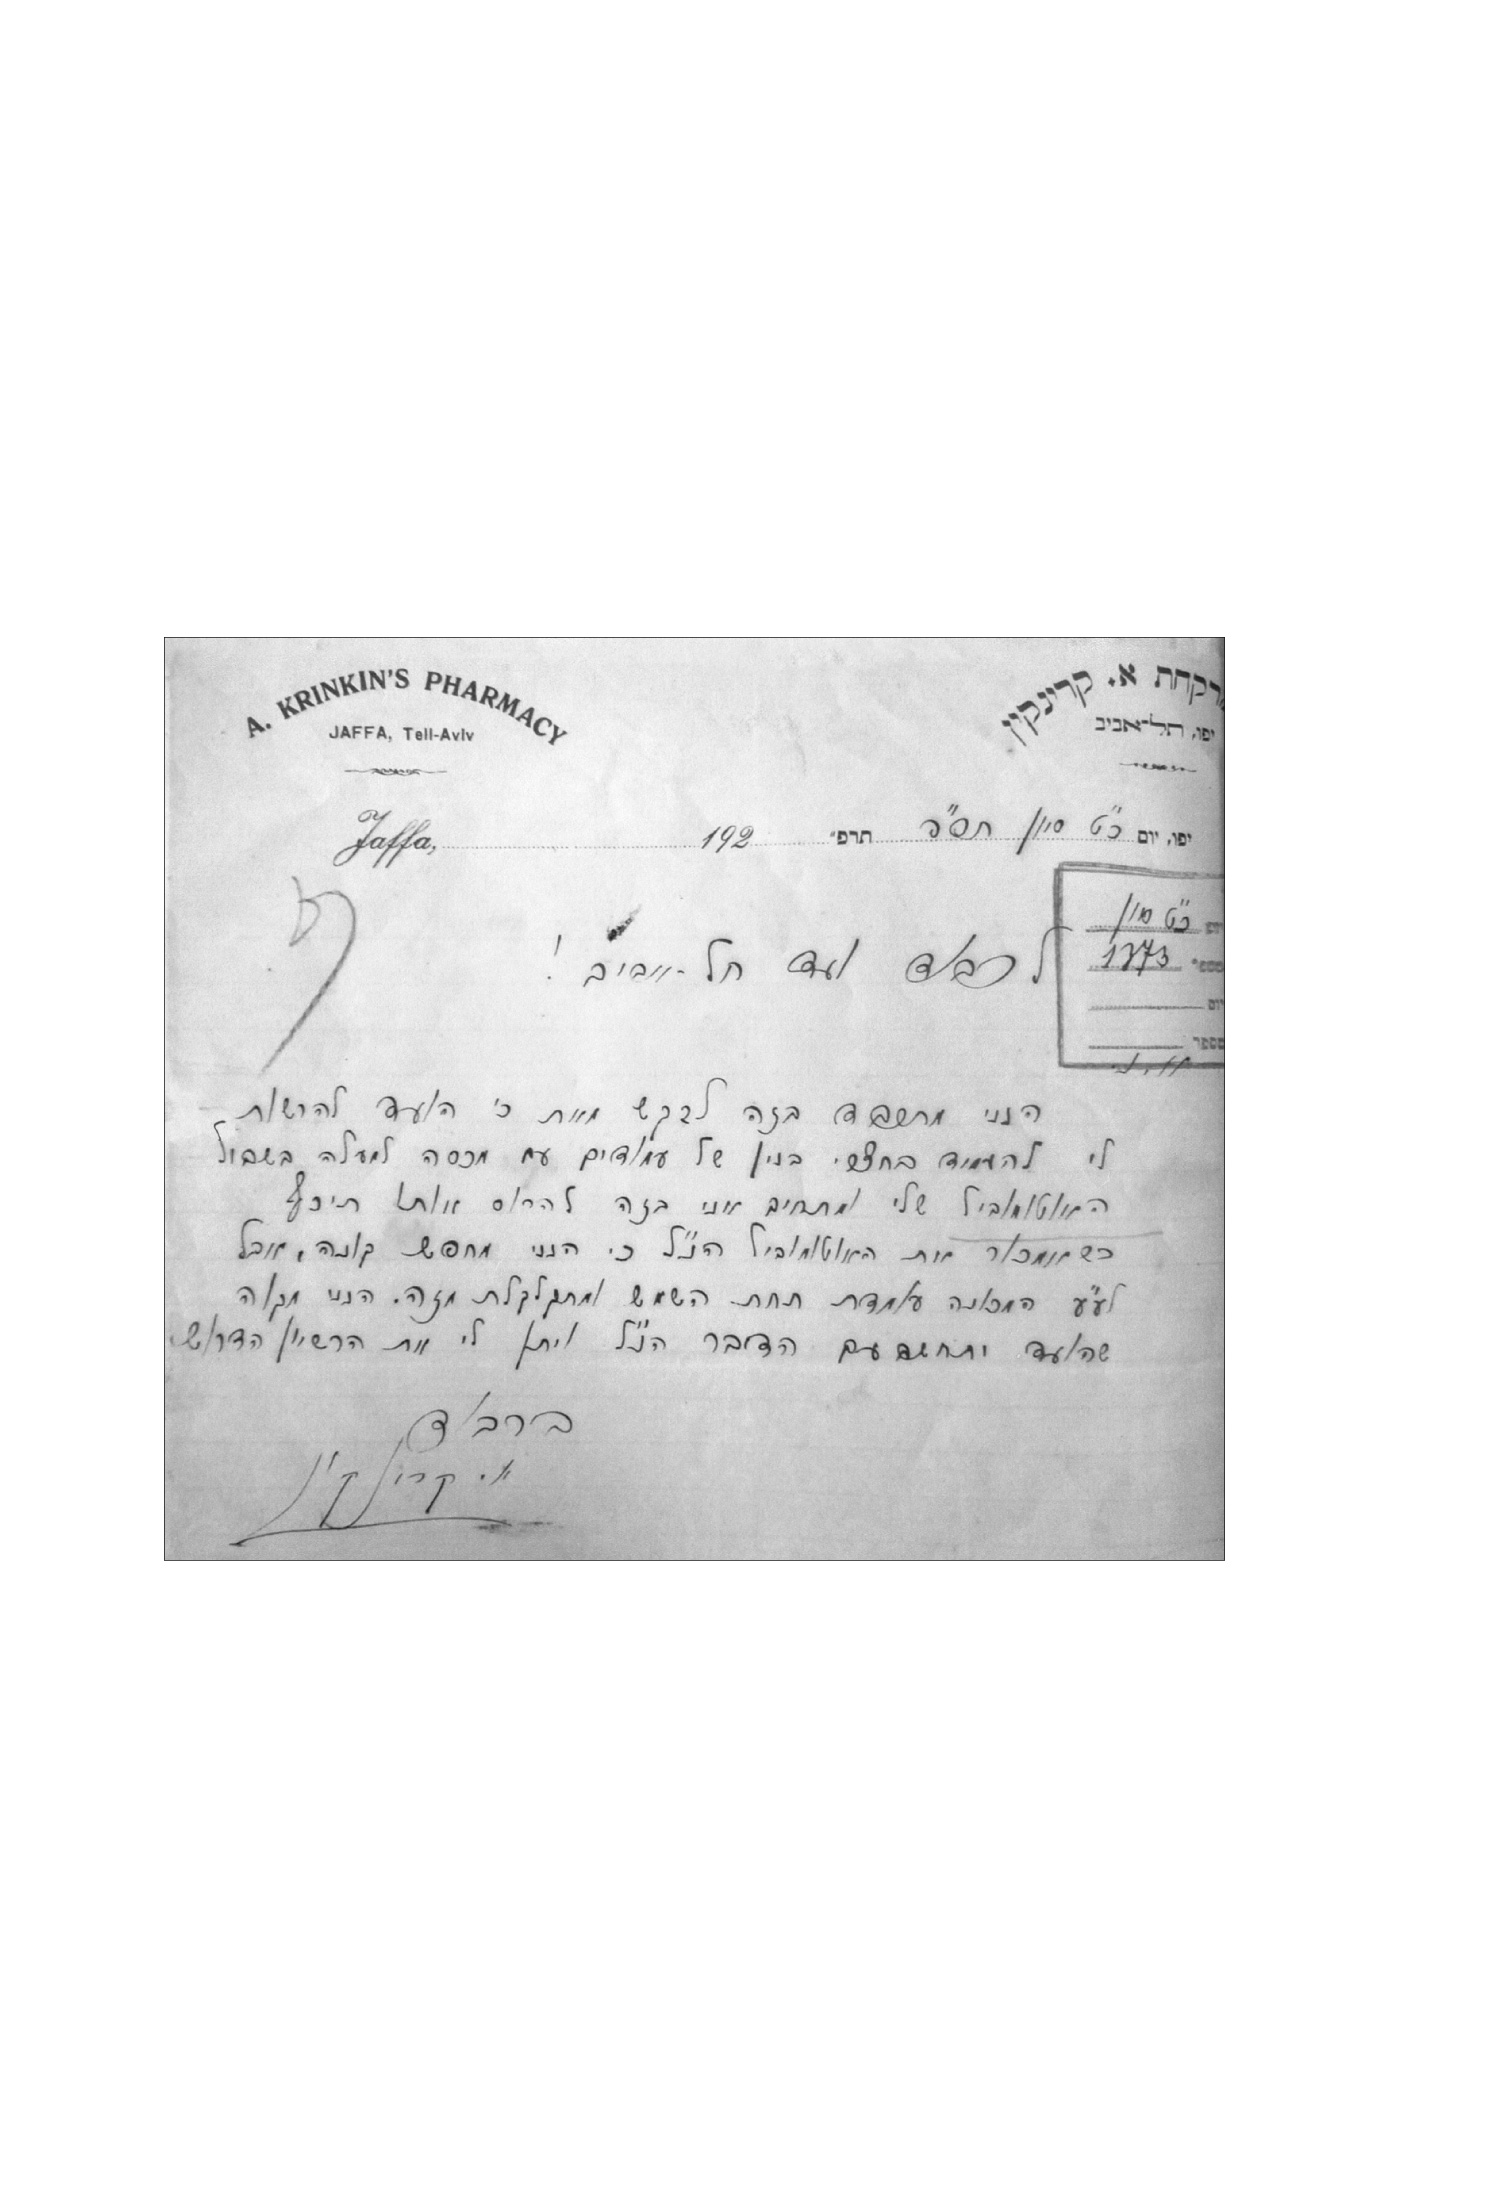 A. KRINKIN'S PHARMACY
JAFFA, Tell-Aviv
רקחת א. קרינקין
יפו, תל-אביב
Jaffa, 192 תרפ״
יפו, יום כ"ט סיון
כ"ט סיון
1373
מספר
לכבוד ועד תל-אביב!
הנני מתכבד בזה לבקש מאת כ' הועד להרשות
לי להעמיד בחצרי בנין של עמודים עם מכסה למעלה בשביל
האוטומוביל שלי ומתחיב אני בזה להרוס אותו תיכף
כשאמכור את האוטומוביל הנ"ל כי הנני מחפש קונה, אבל
לע"ע המכונה עומדת תחת השמש ומתקלקלת מזה. הנני מקוה
שהועד יתחשב עם הדבר הנ"ל ויתן לי את הרשיון הדרוש
בכבוד
א. קרינקין